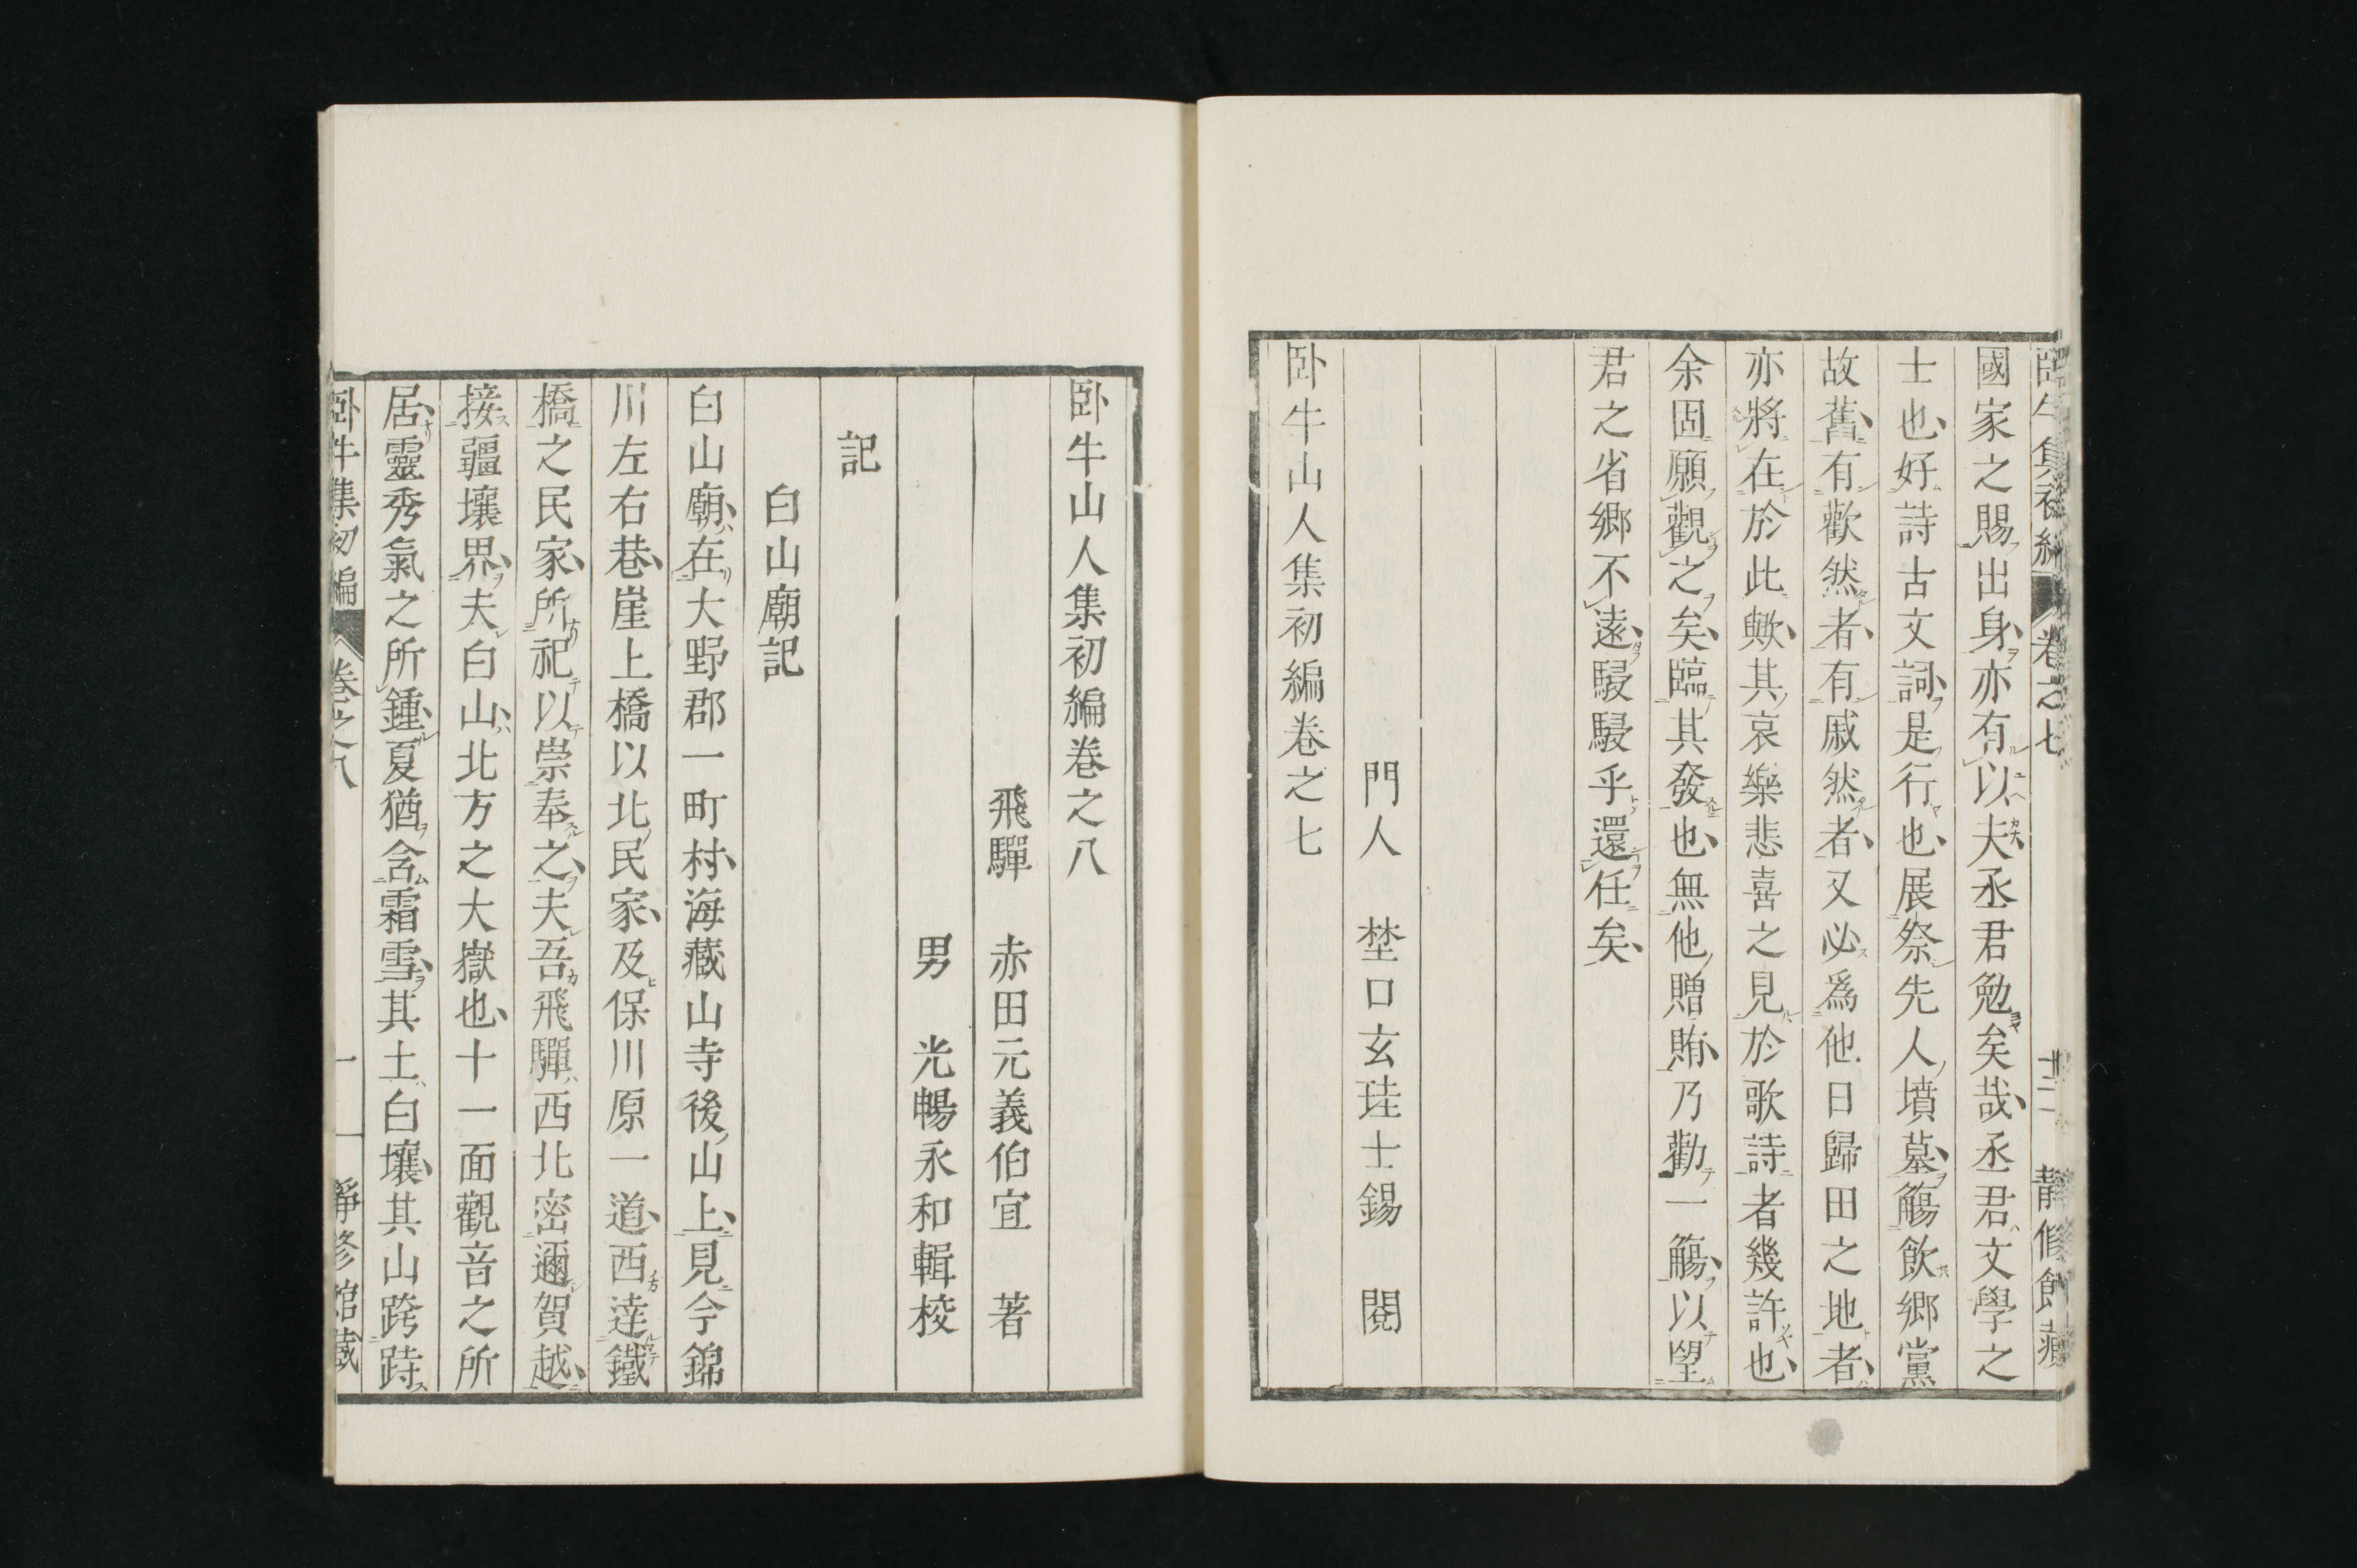 國家之賜出身、亦有以夫丞君勉矣哉、丞君文學之
士也、好詩古文詞、是行也、展祭先人墳墓、觴飲鄉黨
故舊、有歡然者、有戚然者、又必爲他日歸田之地者、
亦將在於此歟、其哀樂悲喜之見於歌詩者幾許也、
余固願觀之矣、臨其發也、無他贈賄、乃勸一觴、以望
君之省鄉不遠、駸駸乎還任矣、
門人　埜口玄珪士錫　閱
卧牛山人集初編卷之七
卧牛山人集初編卷之八
飛驒　赤田元義伯宜　著
男　光暢永和輯校
記
白山廟記
白山廟、在大野郡一町村、海藏山寺後山上、見今錦
川左右巷、崖上橋以北民家、及保川原一道、西達鐵
橋之民家、所祀以崇奉之、夫吾飛驒西北密邇賀越、
接疆壤界、夫白山、北方之大嶽也、十一面觀音之所
居、靈秀氣之所鍾、夏猶含霜雪、其土白壤、其山跨跱
卧牛集初編　卷之八　一　靜修館藏